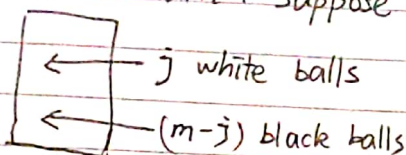 suppose
j white balls
(m-j) black balls